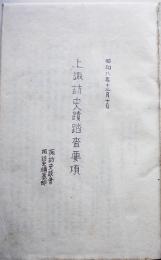 昭和八年十二月十日
上諏訪史蹟踏査要項
諏訪史談會